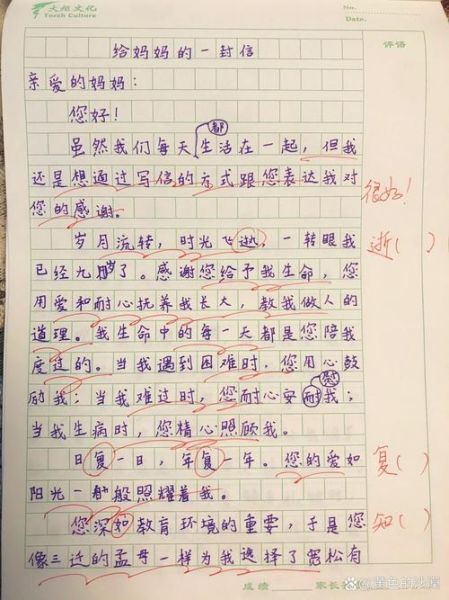 火炬文化
Torch Culture
No.
Date.
评语
给妈妈的一封信
亲爱的妈妈：
您好！
虽然我们每天都生活在一起，但我
还是想通过写信的方式跟您表达我对
您的感谢。
很好！
岁月流转，时光飞逝，一转眼我
逝（ ）
已经九岁了。感谢您给予我生命，您
用爱和耐心抚养我长大，教我做人的
道理。我生命中的每一天都是您陪我
度过的。当我遇到困难时，您用心鼓
励我；当我难过时，您耐心安慰我；
当我生病时，您精心照顾我。
日复一日，年复一年。您的爱如
复（ ）
阳光一般照耀着我。
您深如教育环境的重要，于是您
知（ ）
像三迁的孟母一样为我选择了宽松有
成绩 家长